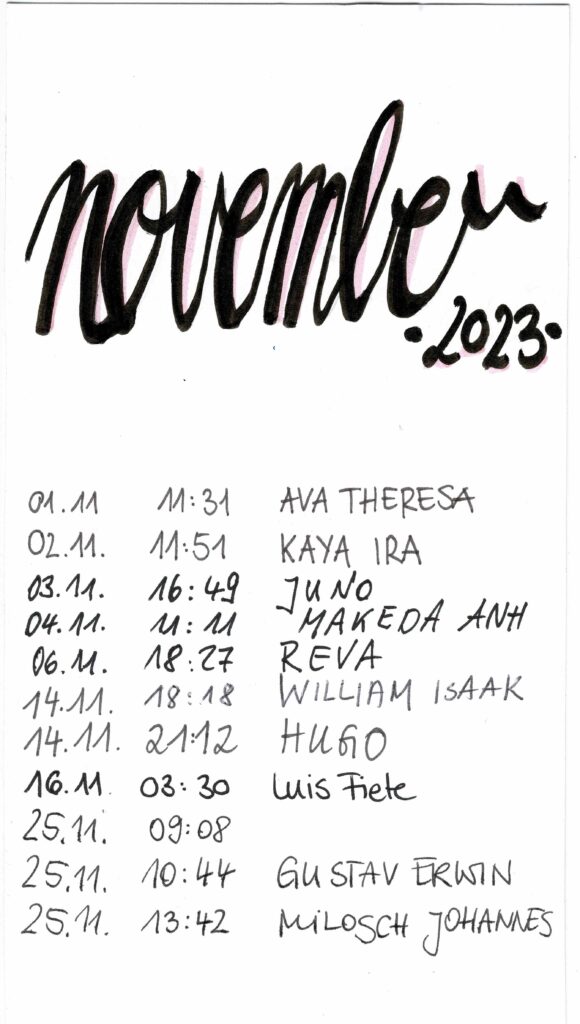 november
·2023·
01.11 11:31 AVA THERESA
02.11. 11:51 KAYA IRA
03.11. 16:49 JUNO
04.11. 11:11 MAKEDA ANH
06.11. 18:27 REVA
14.11. 18:18 WILLIAM ISAAK
14.11. 21:12 HUGO
16.11. 03:30 Luis Fiete
25.11. 09:08
25.11. 10:44 GUSTAV ERWIN
25.11. 13:42 MILOSCH JOHANNES